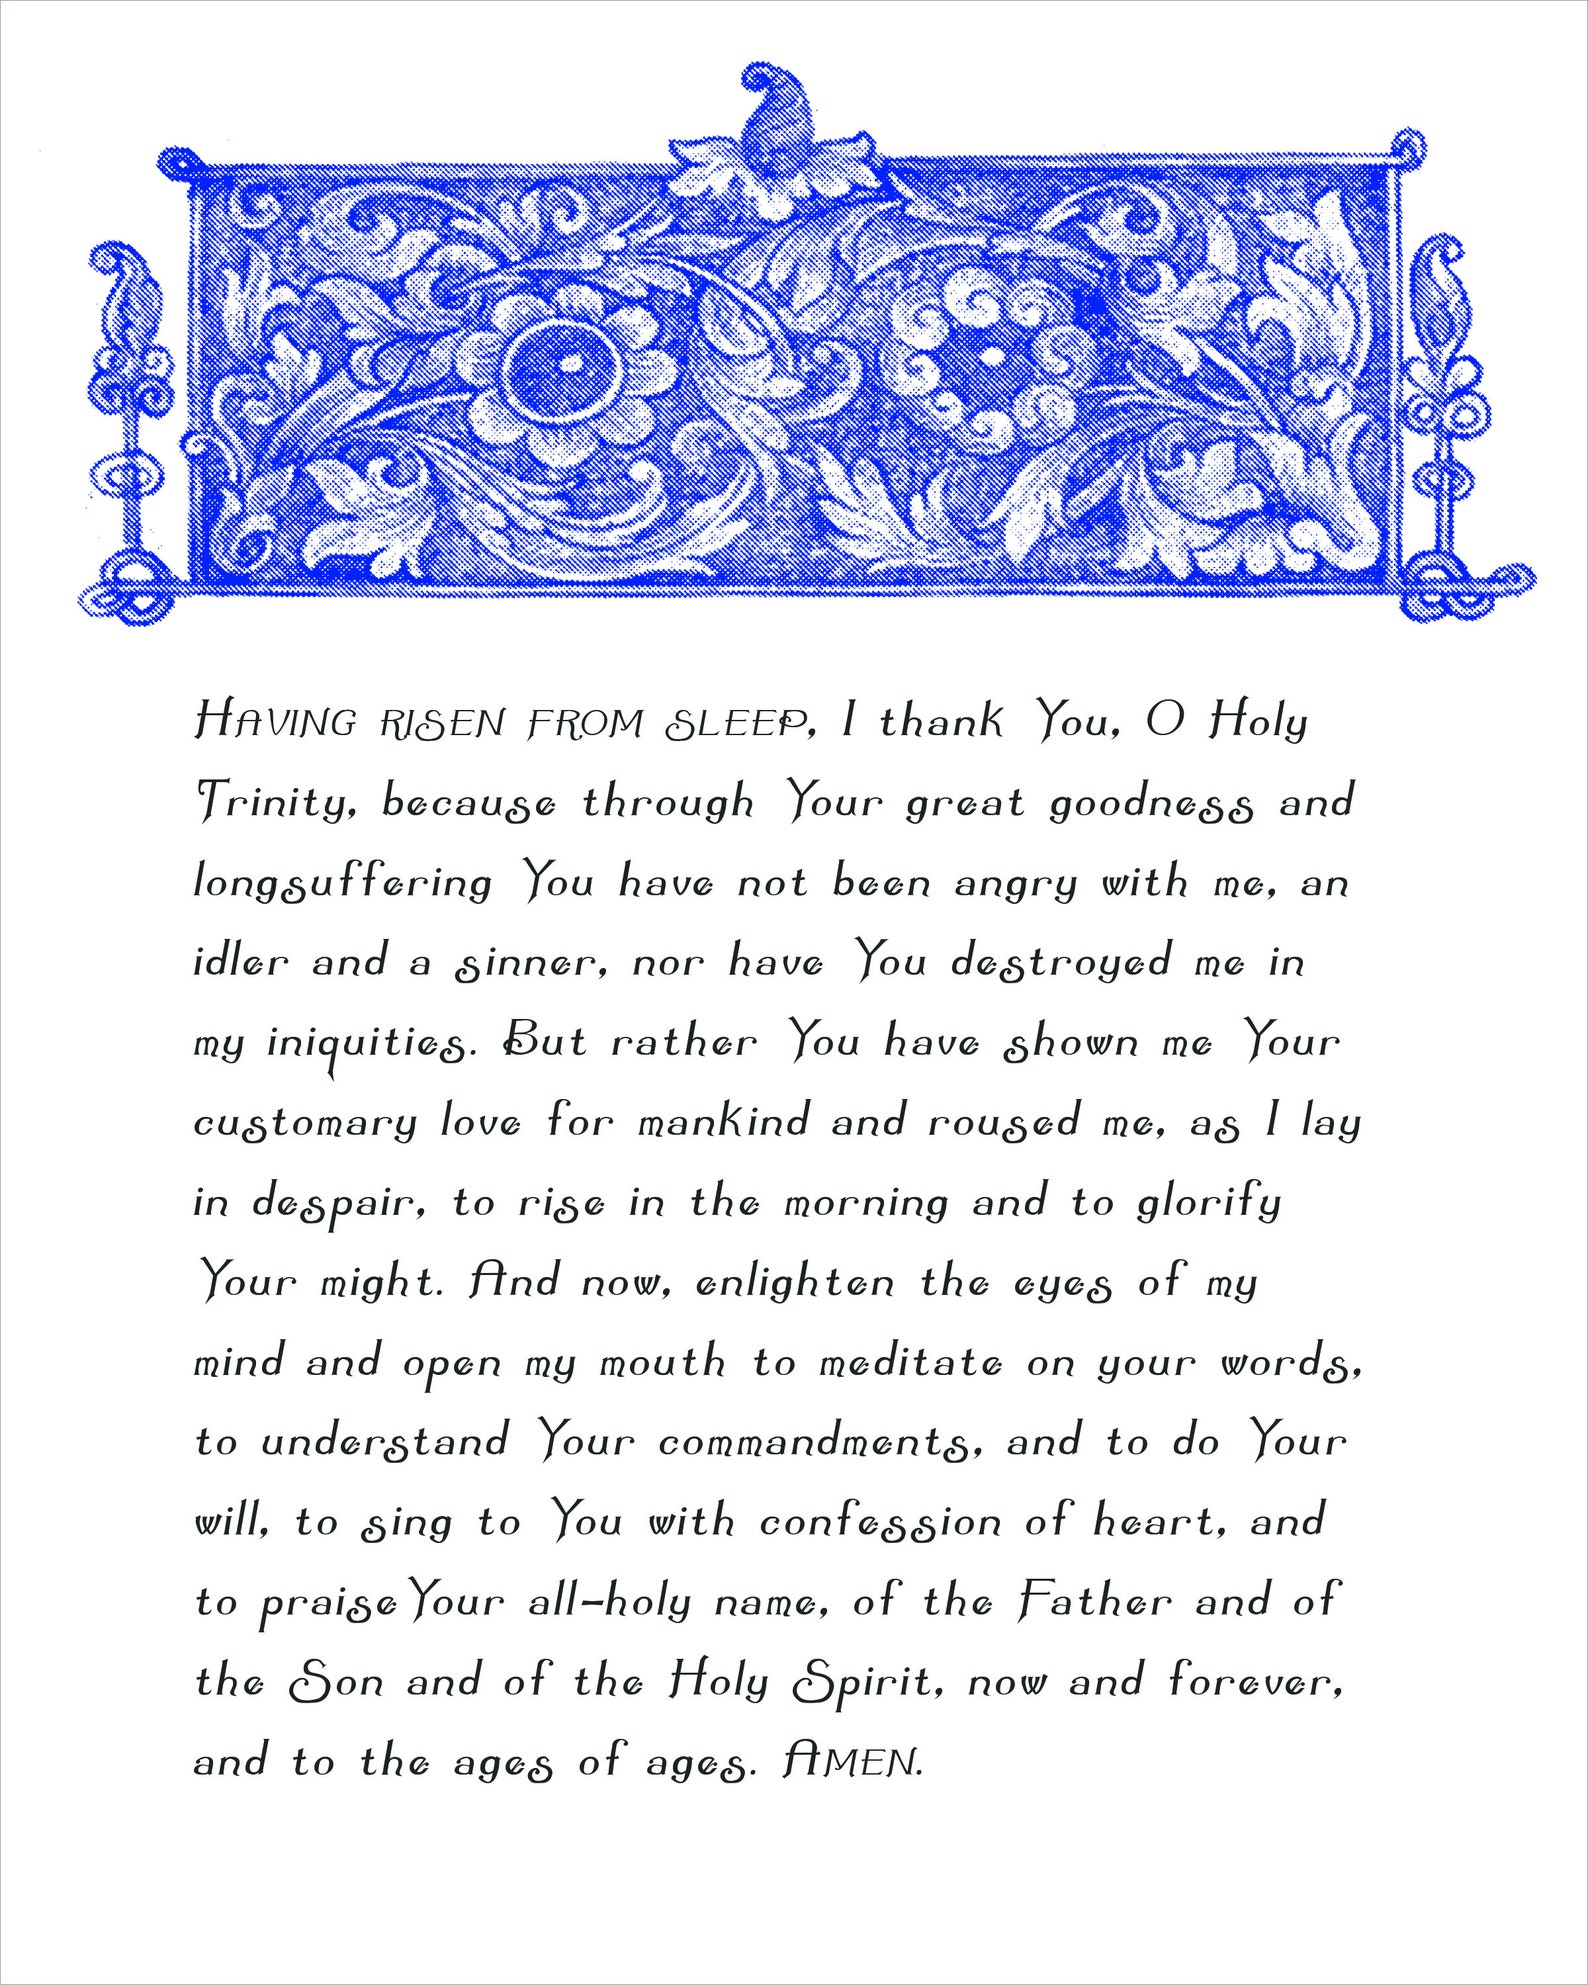 HAVING RISEN FROM SLEEP, I thank You, O Holy
Trinity, because through Your great goodness and
longsuffering You have not been angry with me, an
idler and a sinner, nor have You destroyed me in
my iniquities. But rather You have shown me Your
customary love for mankind and roused me, as I lay
in despair, to rise in the morning and to glorify
Your might. And now, enlighten the eyes of my
mind and open my mouth to meditate on your words,
to understand Your commandments, and to do Your
will, to sing to You with confession of heart, and
to praise Your all-holy name, of the Father and of
the Son and of the Holy Spirit, now and forever,
and to the ages of ages. AMEN.